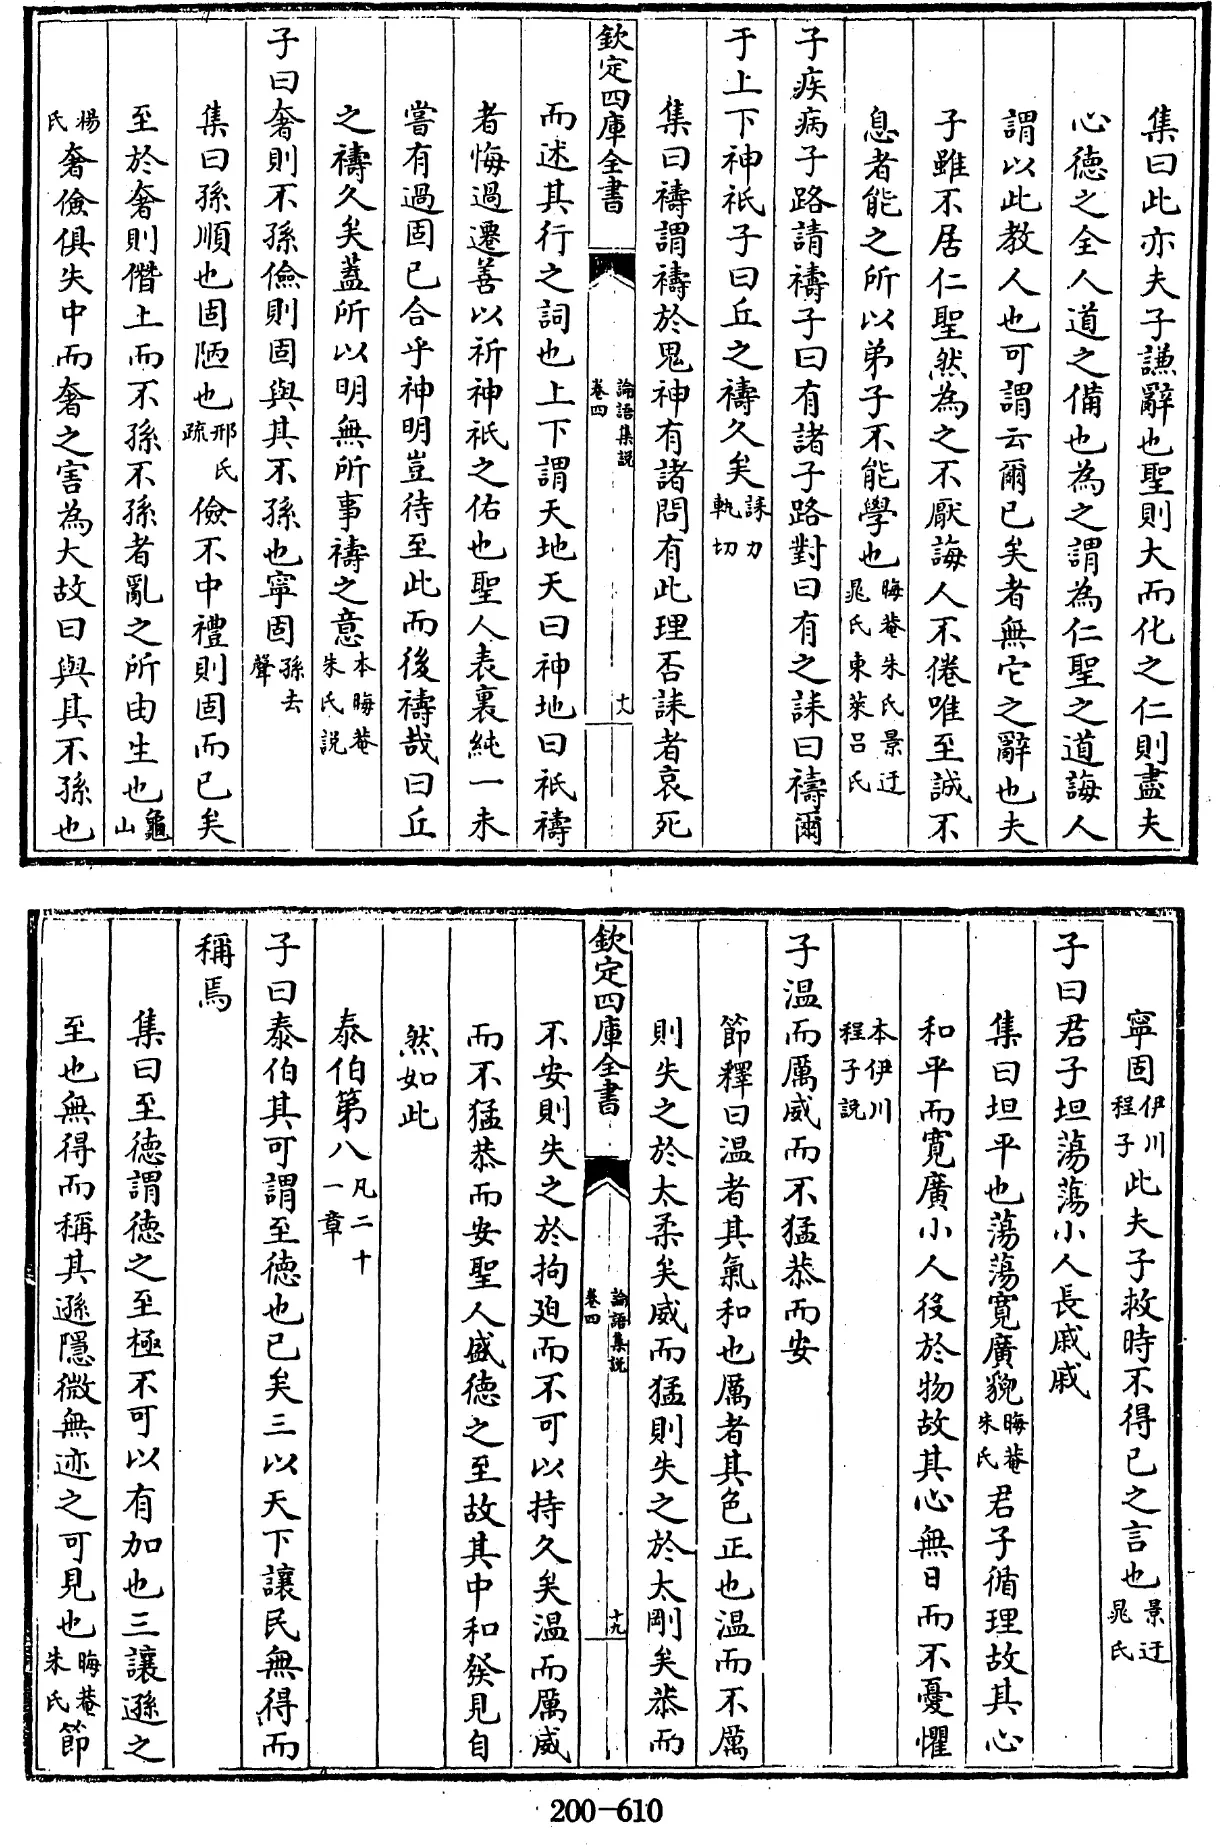 集曰此亦夫子謙辭也聖則大而化之仁則盡夫
心德之全人道之備也為之謂為仁聖之道誨人
謂以此教人也可謂云爾已矣者無它之辭也夫
子雖不居仁聖然為之不厭誨人不倦唯至誠不
息者能之所以弟子不能學也晦菴朱氏景迂晁氏東萊呂氏
子疾病子路請禱子曰有諸子路對曰有之誄曰禱爾
于上下神祇子曰丘之禱久矣誄力軌切
集曰禱謂禱於鬼神有諸問有此理否誄者哀死
欽定四庫全書 論語集說卷四 十八
而述其行之詞也上下謂天地天曰神地曰祇禱
者悔過遷善以祈神祇之佑也聖人表裏純一未
嘗有過固已合乎神明豈待至此而後禱哉曰丘
之禱久矣蓋所以明無所事禱之意本晦菴朱氏說
子曰奢則不孫儉則固與其不孫也寧固孫去聲
集曰孫順也固陋也邢氏疏儉不中禮則固而已矣
至於奢則僭上而不孫不孫者亂之所由生也龜山
楊氏奢儉俱失中而奢之害為大故曰與其不孫也
寧固伊川程子此夫子救時不得已之言也景迂晁氏
子曰君子坦蕩蕩小人長戚戚
集曰坦平也蕩蕩寬廣貌晦菴朱氏君子循理故其心
和平而寬廣小人役於物故其心無日而不憂懼
本伊川程子說
子溫而厲威而不猛恭而安
節釋曰溫者其氣和也厲者其色正也溫而不厲
則失之於太柔矣威而猛則失之於太剛矣恭而
欽定四庫全書 論語集說卷四 十九
不安則失之於拘廹而不可以持久矣溫而厲威
而不猛恭而安聖人盛德之至故其中和發見自
然如此
泰伯第八凡二十一章
子曰泰伯其可謂至德也已矣三以天下讓民無得而
稱焉
集曰至德謂德之至極不可以有加也三讓遜之
至也無得而稱其遜隱微無迹之可見也晦菴朱氏節
200-610